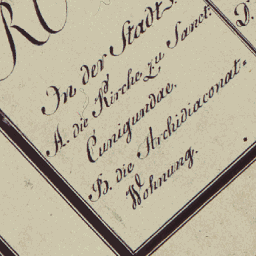 In der Stadt.
A. die Kirche zu Sanct:
Cunigundae.
B. die Archidiaconat.
Wohnung.
D.